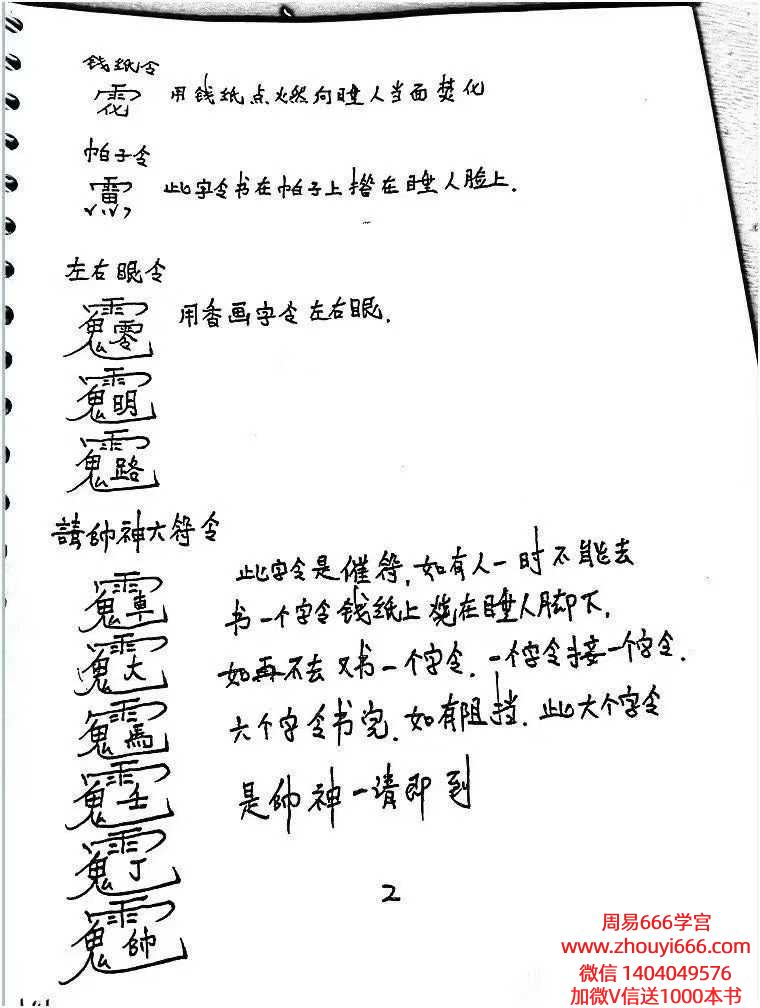 钱纸令
用钱纸点火燃向睡人当面焚化
帕子令
此字令书在帕子上搭在睡人脸上.
左右眼令
用香画字令左右眼.
零
明
路
請帥神六符令
此字令是催符,如有人一时不能去
书一个字令钱纸上烧在睡人脚下,
如再不去又书一个字令.一个字令接一个字令.
六个字令书完.如有阻挡.此六个字令
是帥神一请即到
車
大
馬
壬
丁
帥
2
周易666学宫
www.zhouyi666.com
微信 1404049576
加微V信送1000本书